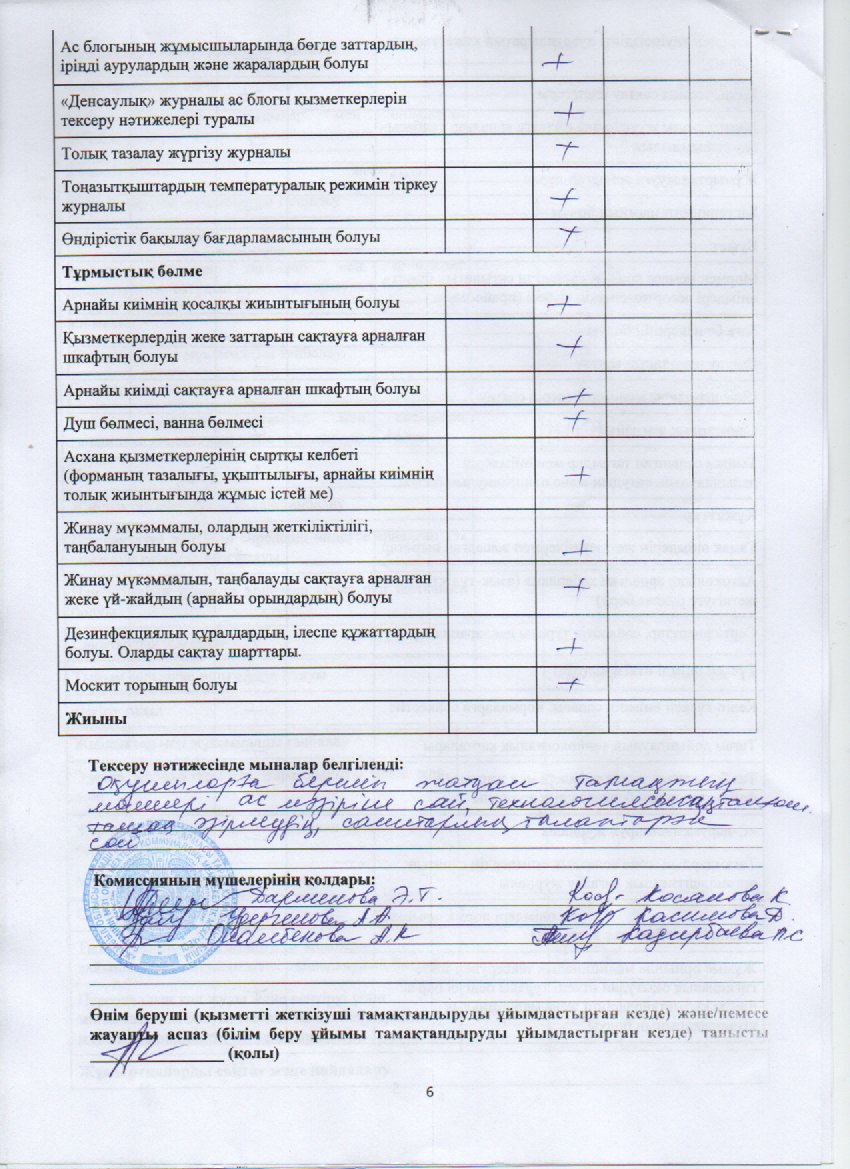 Ас блогының жұмысшыларында бөгде заттардың,
іріңді аурулардың және жаралардың болуы +
«Денсаулық» журналы ас блогы қызметкерлерін
тексеру нәтижелері туралы +
Толық тазалау жүргізу журналы +
Тоңазытқыштардың температуралық режимін тіркеу
журналы +
Өндірістік бақылау бағдарламасының болуы +
Тұрмыстық бөлме
Арнайы киімнің қосалқы жиынтығының болуы +
Қызметкерлердің жеке заттарын сақтауға арналған
шкафтың болуы +
Арнайы киімді сақтауға арналған шкафтың болуы +
Душ бөлмесі, ванна бөлмесі +
Асхана қызметкерлерінің сыртқы келбеті
(форманың тазалығы, ұқыптылығы, арнайы киімнің +
толық жиынтығында жұмыс істей ме)
Жинау мүкәммалы, олардың жеткіліктілігі,
таңбалануының болуы +
Жинау мүкәммалын, таңбалауды сақтауға арналған
жеке үй-жайдың (арнайы орындардың) болуы +
Дезинфекциялық құралдардың, ілеспе құжаттардың
болуы. Оларды сақтау шарттары. +
Москит торының болуы +
Жиыны
Тексеру нәтижесінде мыналар белгіленді:
Оқушыларға беріліп жатқан тамақтың
мөлшері ас мәзіріне сай, технологиясы сақталған.
тамақ әзірлеудің, санитарлық талаптарға
сай
Комиссияның мүшелерінің қолдары:
Э.Т. Косанова К.
А.А. Касимова Д.
А.К Кадирбаева
Өнім беруші (қызметті жеткізуші тамақтандыруды ұйымдастырған кезде) және/немесе
жауапты аспаз (білім беру ұйымы тамақтандыруды ұйымдастырған кезде) танысты
(қолы)
6